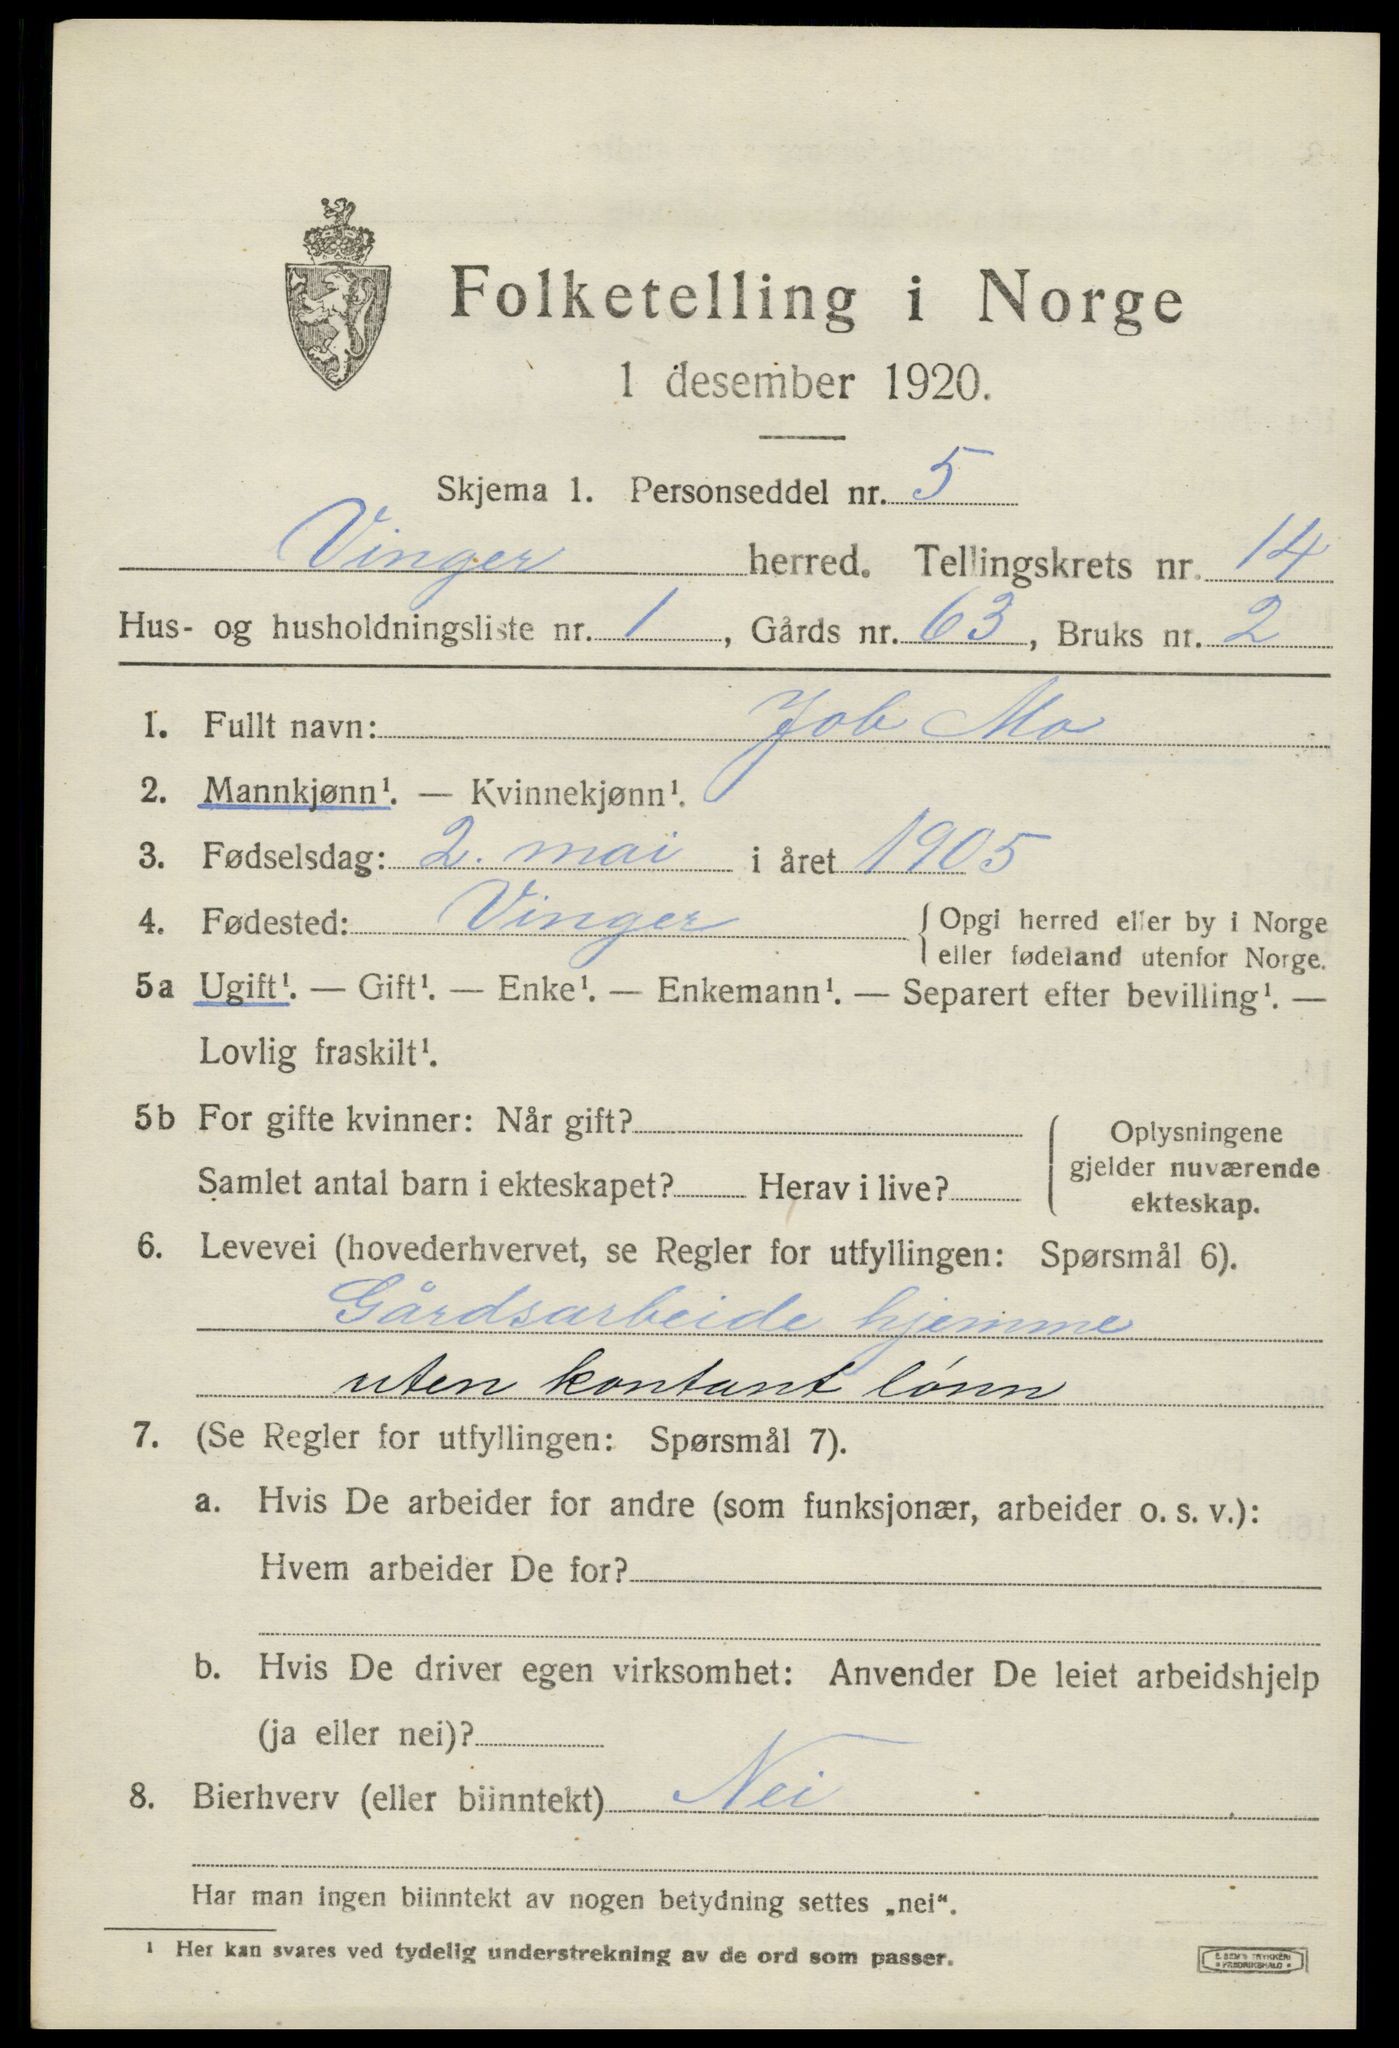 Folketelling i Norge
1 desember 1920.
Skjema 1. Personseddel nr. 5
Vinger herred. Tellingskrets nr. 14
Hus- og husholdningsliste nr. 1, Gårds nr. 63, Bruks nr. 2
1. Fullt navn: Job Mo
2. Mannkjønn¹. — Kvinnekjønn¹.
3. Fødselsdag: 2. mai i året 1905
4. Fødested: Vinger { Opgi herred eller by i Norge
eller fødeland utenfor Norge.
5a Ugift¹. — Gift¹. — Enke¹. — Enkemann¹. — Separert efter bevilling¹. —
Lovlig fraskilt¹.
5b For gifte kvinner: Når gift?
Samlet antal barn i ekteskapet? Herav i live?
Oplysningene
gjelder nuværende
ekteskap.
6. Levevei (hovederhvervet, se Regler for utfyllingen: Spørsmål 6).
Gårdsarbeide hjemme
uten kontant lønn
7. (Se Regler for utfyllingen: Spørsmål 7).
a. Hvis De arbeider for andre (som funksjonær, arbeider o. s. v.):
Hvem arbeider De for?
b. Hvis De driver egen virksomhet: Anvender De leiet arbeidshjelp
(ja eller nei)?
8. Bierhverv (eller biinntekt) Nei
Har man ingen biinntekt av nogen betydning settes „nei“.
¹ Her kan svares ved tydelig understrekning av de ord som passer.
E. SEM'S TRYKKERI
FREDRIKSHALD